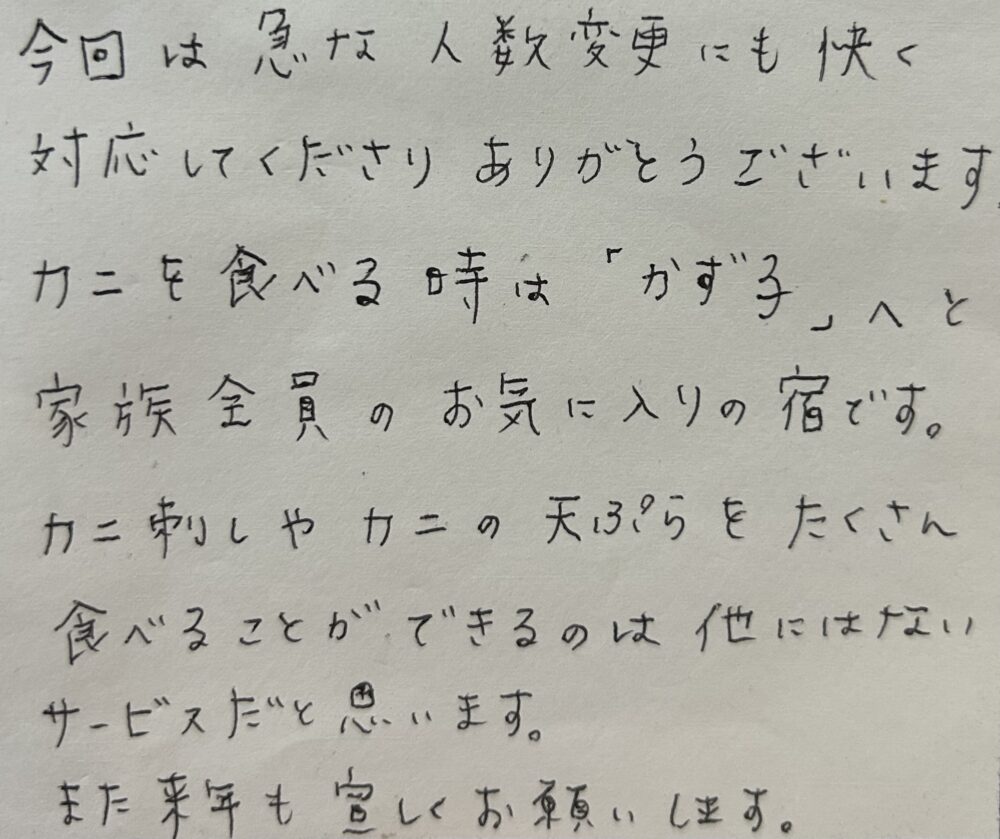 今回は急な人数変更にも快く
対応してくださりありがとうございます。
カニを食べる時は「かず子」へと
家族全員のお気に入りの宿です。
カニ刺しやカニの天ぷらをたくさん
食べることができるのは他にはない
サービスだと思います。
また来年も宜しくお願いします。